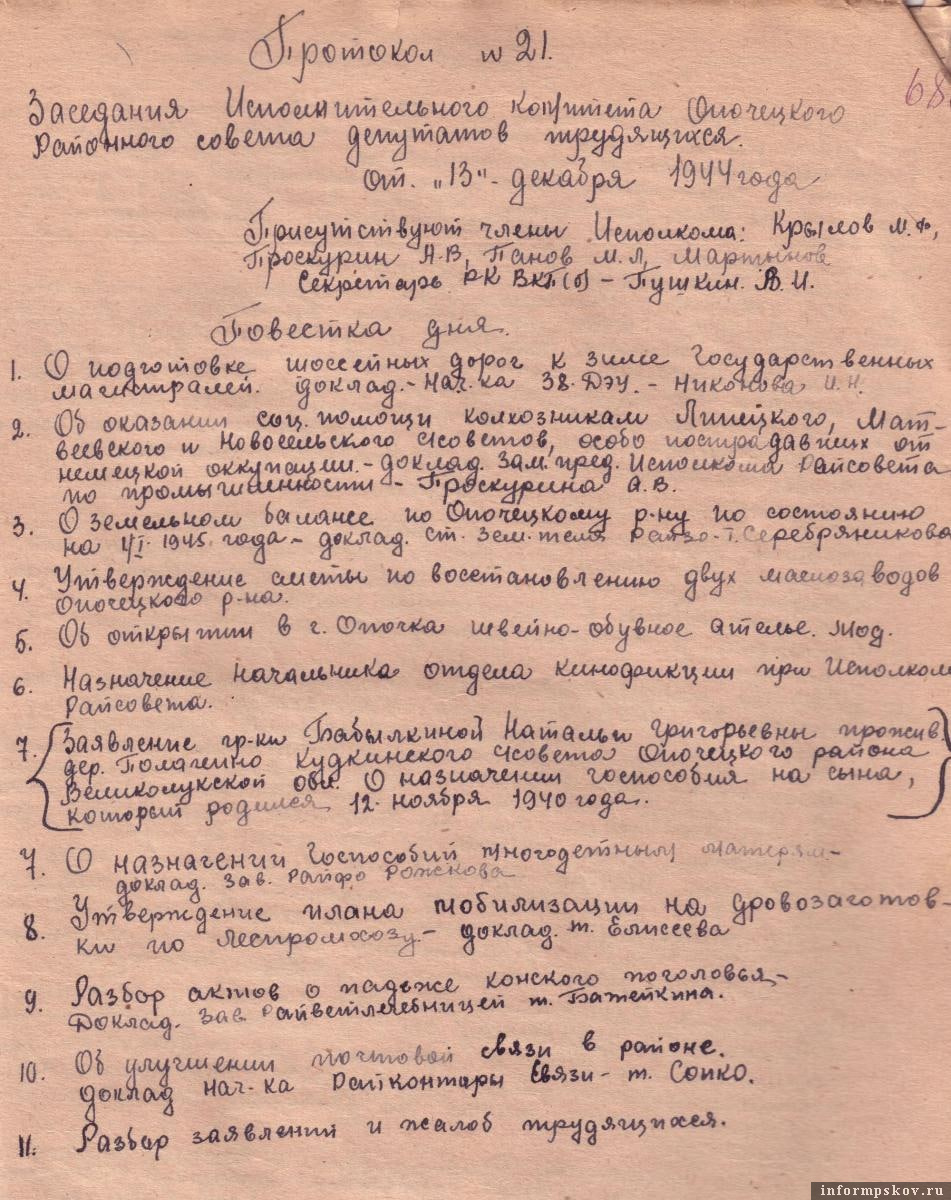 Протокол № 21.
68
Заседания Исполнительного комитета Опочецкого
Районного совета депутатов трудящихся.
от. „13" - декабря 1944 года
Присутствуют члены Исполкома: Крылов М.Ф,
Проскурин А.В, Панов М.Л, Мартынов
Секретарь РК ВКП(б) – Пушкин. А.И.
Повестка дня.
1. О подготовке шоссейных дорог к зиме Государственных
магистралей. доклад. – Нач.ка 38. ДЭУ. – Никонова И.Н.
2. Об оказании соц. помощи колхозникам Липецкого, Мат-
веевского и Новосельского с/советов, особо пострадавших от
немецкой оккупации. – доклад. Зам. пред. Исполкома Райсовета
по промышленности – Проскурина А.В.
3. О земельном балансе по Опочецкому р-ну по состоянию
на 1/I. 1945 года – доклад. ст. зем. теля Райзо – т. Серебряникова
4. Утверждение сметы по восстановлению двух маслозаводов
Опочецкого р-на.
5. Об открытии в г. Опочка швейно-обувное ателье. Мод.
6. Назначение Начальника отдела кинофикции при Исполком
Райсовета.
7. Заявление гр-ки Бабылкиной Натальи Григорьевны прожив
дер. Полагино Кудкинского с/совета Опочецкого района
Великолукской обл. О назначении госпособия на сына,
который родился 12. ноября 1940 года.
7. О назначении Госпособий многодетным матерям –
доклад. Зав. Райфо Рожкова
8. Утверждение плана мобилизации на дровозаготов-
ки по леспромхозу – доклад. т. Елисеева
9. Разбор актов о падеже конского поголовья –
Доклад. Зав. Райветлечебницей т. Бажейкина.
10. Об улучшении почтовой связи в районе.
доклад Нач-ка Райконторы Связи – т. Сопко.
11. Разбор заявлений и жалоб трудящихся.
informpskov.ru